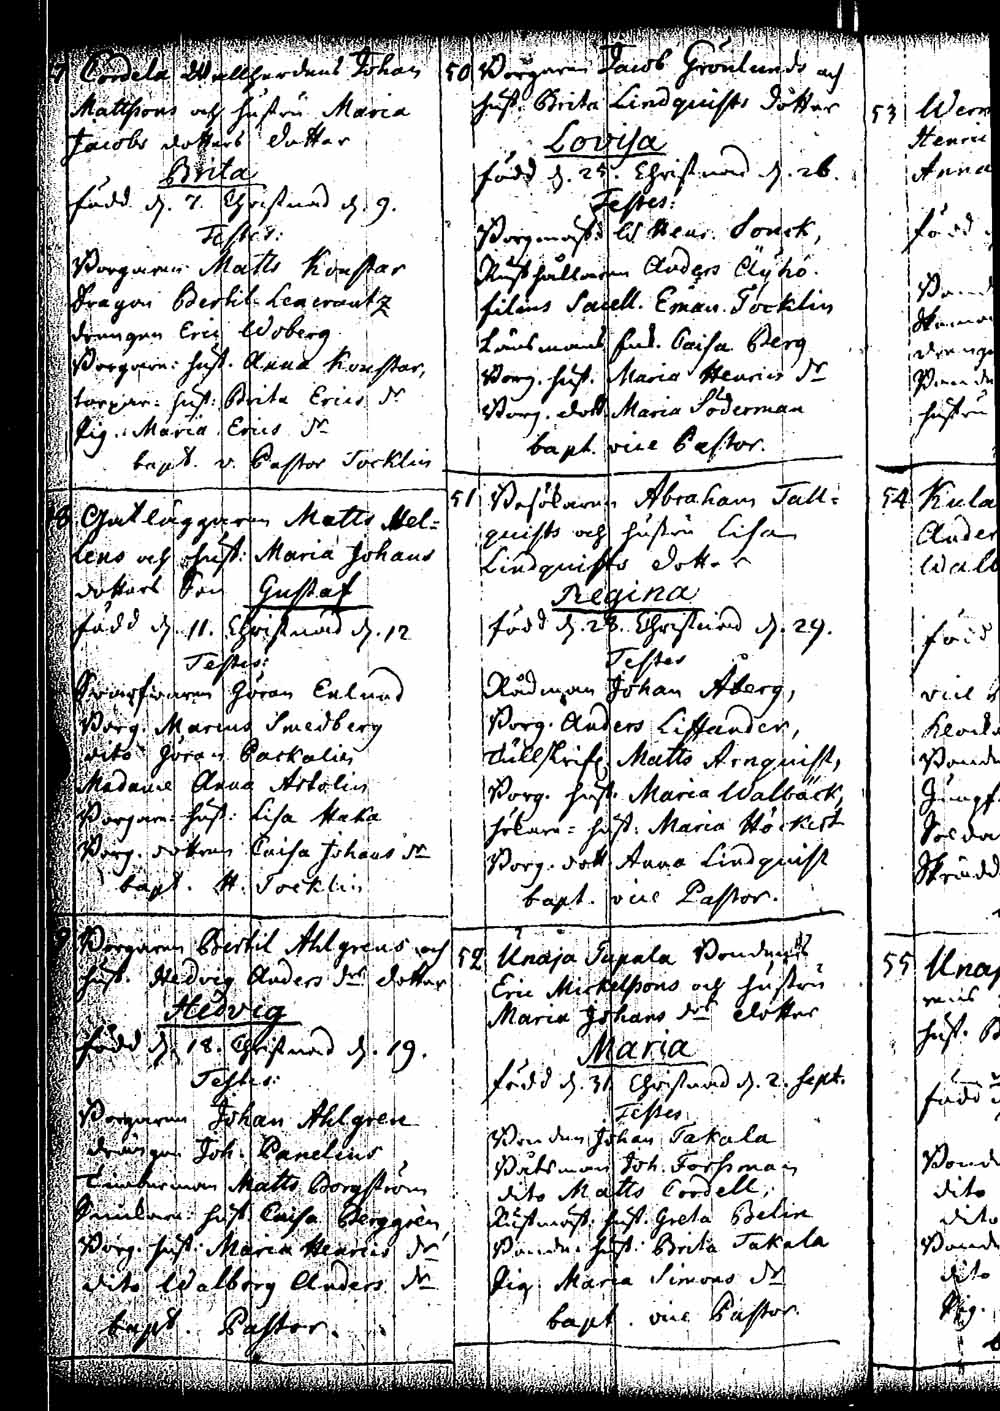 7 Cordela Wallherdens Johan
Mattssons och hustru Maria
Jacobs dotters dotter
Brita
född d. 7. Christnad d. 9.
Testes:
Borgaren Matts Konstar
Dragon Bertil Lencrantz
drengen Eric Woberg
Borgare: hust. Anna Konstar,
torpar: hust: Brita Erics dr
Pig. Maria Erics dr
bapt. v. Pastor Tocklin
8 Gatläggaren Matts Mel=
lens och hust: Maria Johans
dotters Son Gustaf
född d. 11. Christnad d. 12
Testes:
Göran Enlund
Borg. Marcus Smedberg
dito Göran Packalin
Madame Anna Arbolin
Borgare= hust: Lisa Maka
Borg. dottren Caisa Johans dr
bapt. H. Tocklin
9 Borgaren Bertil Ahlgrens och
hust. Hedvig Anders drs dotter
Hedvig
född d. 18. Christnad d. 19.
Testes:
Borgaren Johan Ahlgren
drängen Joh. Panelius
Timberman Matts Borgström
hust. Caisa Berggren,
Borg. hust: Maria Henrics dr
dito Walborg Anders dr
bapt. Pastor.
50 Borgaren Jacob Grönlunds och
hust. Brita Lindquists dotter
Lovisa
född d. 25. Christnad d. 26.
Testes:
Borgmäst: Henr. Sonck,
Rusthållaren Anders Äyhö.
filius Sacell. Eman. Tocklin
Länsmans enk. Caisa Berg
Borg. hust. Maria Henrics dr
Borg. dott. Maria Söderman
bapt. vice Pastor.
51 Besökaren Abraham Tall=
quists och hustru Lisa
Lindquists dotter
Regina
född d. 28. Christnad d. 29.
Testes
Rådman Johan Åberg,
Borg. Anders Listander,
Tullskrif. Matts Arnquist,
Borg. hust. Maria Walbäck,
hust: Maria Höckert
Borg. dott Anna Lindquist
bapt. vice Pastor.
52 Unaja Tupala Bondens
Eric Mickelssons och hustru
Maria Johans drs dotter
Maria
född d. 31 Christnad d. 2. Sept.
Testes
Bonden Johan Takala
Båtsman Joh. Forssman
dito Matts Cordell,
Rustmäst: hust. Greta Belin
Bonde: hust: Brita Takala
Pig. Maria Simons dr
bapt. vice Pastor.
53 Wer
Henri
Anna
född
Bond
dreng
hustru
54 Kula
Ander
Walb
född
vice
Klock
Bond
Jungf
Solda
Skrädd
55 Unaj
hust. B
född
Bond
dito
dito
Bond
dito
Pig.